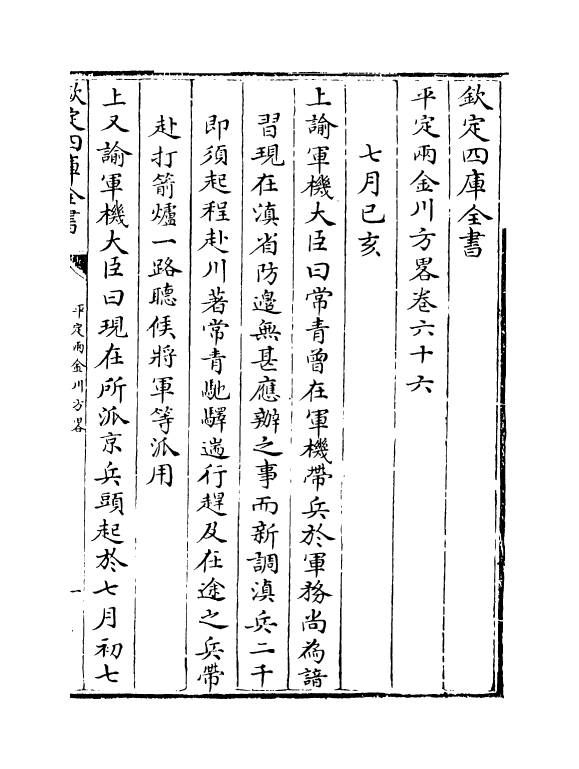 欽定四庫全書
平定兩金川方畧卷六十六
七月己亥
上諭軍機大臣曰常青曾在軍機帶兵於軍務尚為諳
習現在滇省防邊無甚應辦之事而新調滇兵二千
即須起程赴川著常青馳驛遄行趕及在途之兵帶
赴打箭爐一路聽候將軍等派用
上又諭軍機大臣曰現在所派京兵頭起於七月初七
欽定四庫全書
平定兩金川方畧
一